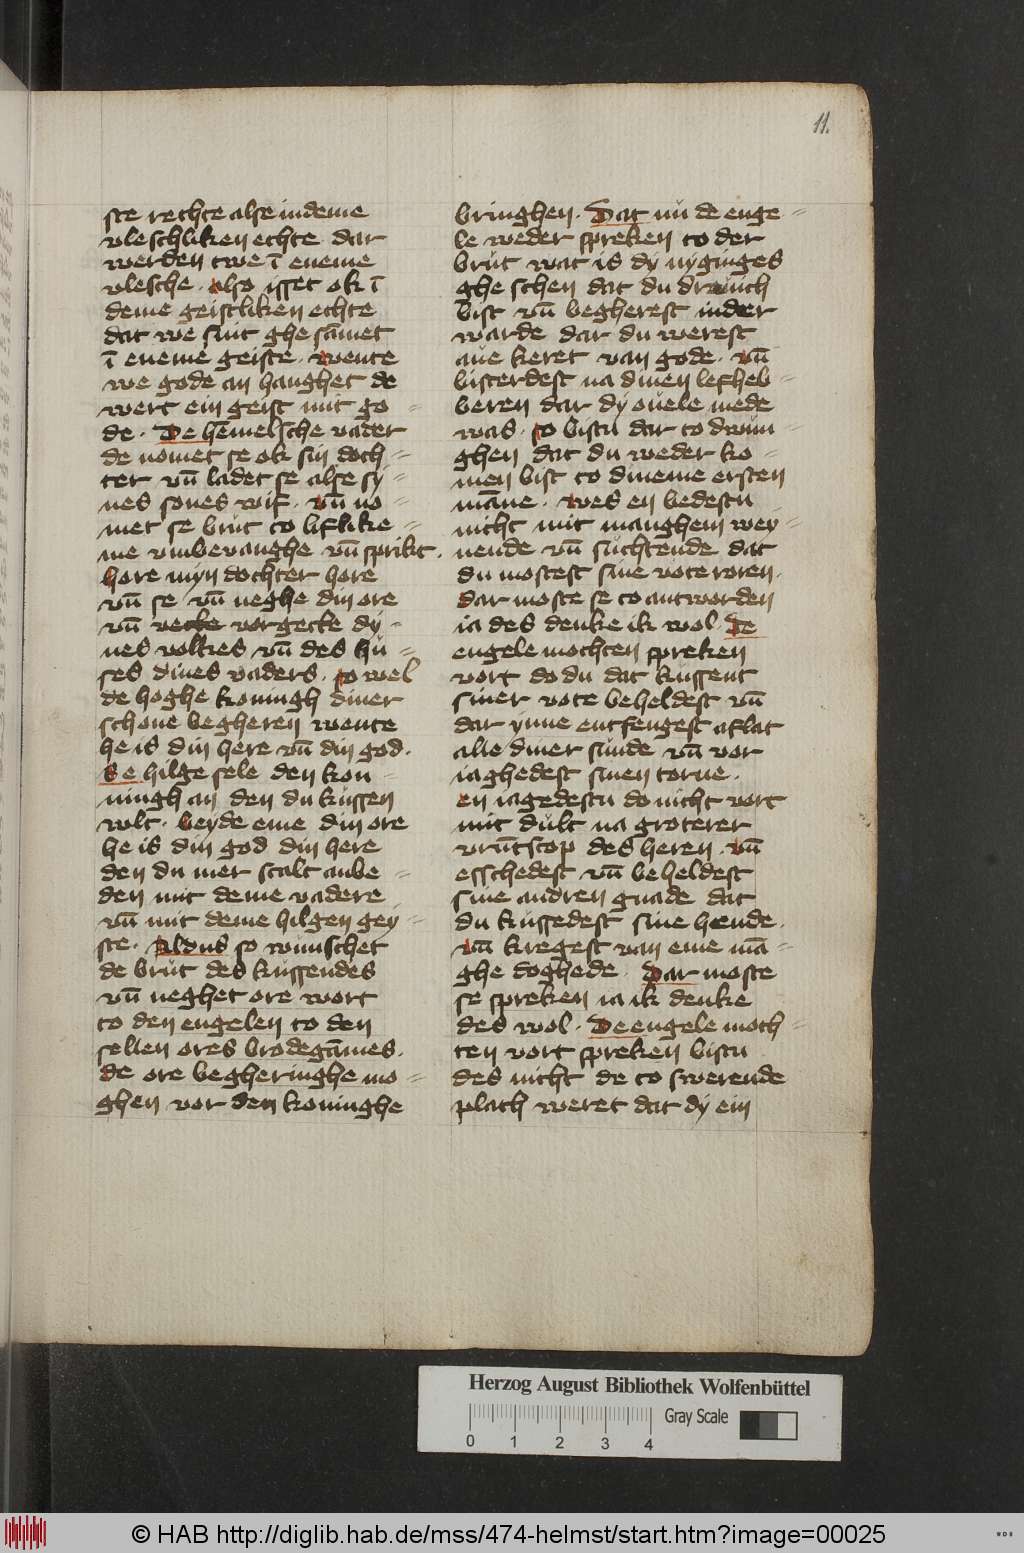 11.
ste rechte alse in deme
vleschliken echte dar
werden twe ī eneme
vlesche. also isset ok ī
deme geistliken echte
dat we sint ghesāmet
ī eneme geiste. wente
we gode an hanghet de
wert ein geist mit go=
de. De hēmelsche vader
de nomet se ok sin doch=
ter vn̄ ladet se alse sy=
nes sones wif. vn̄ no=
met se brut to liflike=
me vmbevanghe vn̄ sprikt.
hore myn dochter hore
vn̄ se vn̄ neghe din ore
vn̄ vorgete dy=
nes volkes vn̄ des hu=
ses dines vaders. so wel
de hoghe koningh diner
schone begheren wente
he is din here vn̄ din god.
Se hilge sele den kon=
ningh an den du kussen
wlt. beyde eme din ore
he is din god din here
den du mer scalt anbe=
den mit deme vadere
vn̄ mit deme hilgen gey=
ste. Aldus so wunschet
de brut des kussendes
vn̄ neghet ore wort
to den engelen to den
sellen ores brodegāmes.
de ore begheringhe mo=
ghen vor den koninghe
bringhen. Dat nu de enge=
le weder spreken to der
brut wat is dy nyginges
gheschen dat du drouich
bist vn̄ begherest in der
warde dar du werest
ave keret van gode. vn̄
lusterdest na dinen lefheb=
beren dar dy ouele mede
was. so bistu dar to dwun=
ghen dat du weder ko=
men bist to dineme ersten
manne. wes en bedestu
nicht mit manghem wey=
nende vn̄ suchtende dat
du mostest sine vote roren.
dar moste se to antworden
ia des denke ik wol. De
engele mochten spreken
vort do du dat kussent
siner vote beheldest vn̄
dar ynne entfengest aflat
alle diner sunde vn̄ vor
iaghedest sinen torne.
en iagedestu do nicht vort
mit dult na groterer
vrūtscop des heren. vn̄
esschedest vn̄ beheldest
sine andren gnade dat
du kussedest sine hende.
vn̄ kregest van eme mā=
ghe doghede. Dar moste
se spreken ia ik denke
des wol. De engele moch=
ten vort spreken bistu
des nicht de to swerende
plach weret dat dy ein
Herzog August Bibliothek Wolfenbüttel
Gray Scale
0 1 2 3 4
© HAB http://diglib.hab.de/mss/474-helmst/start.htm?image=00025